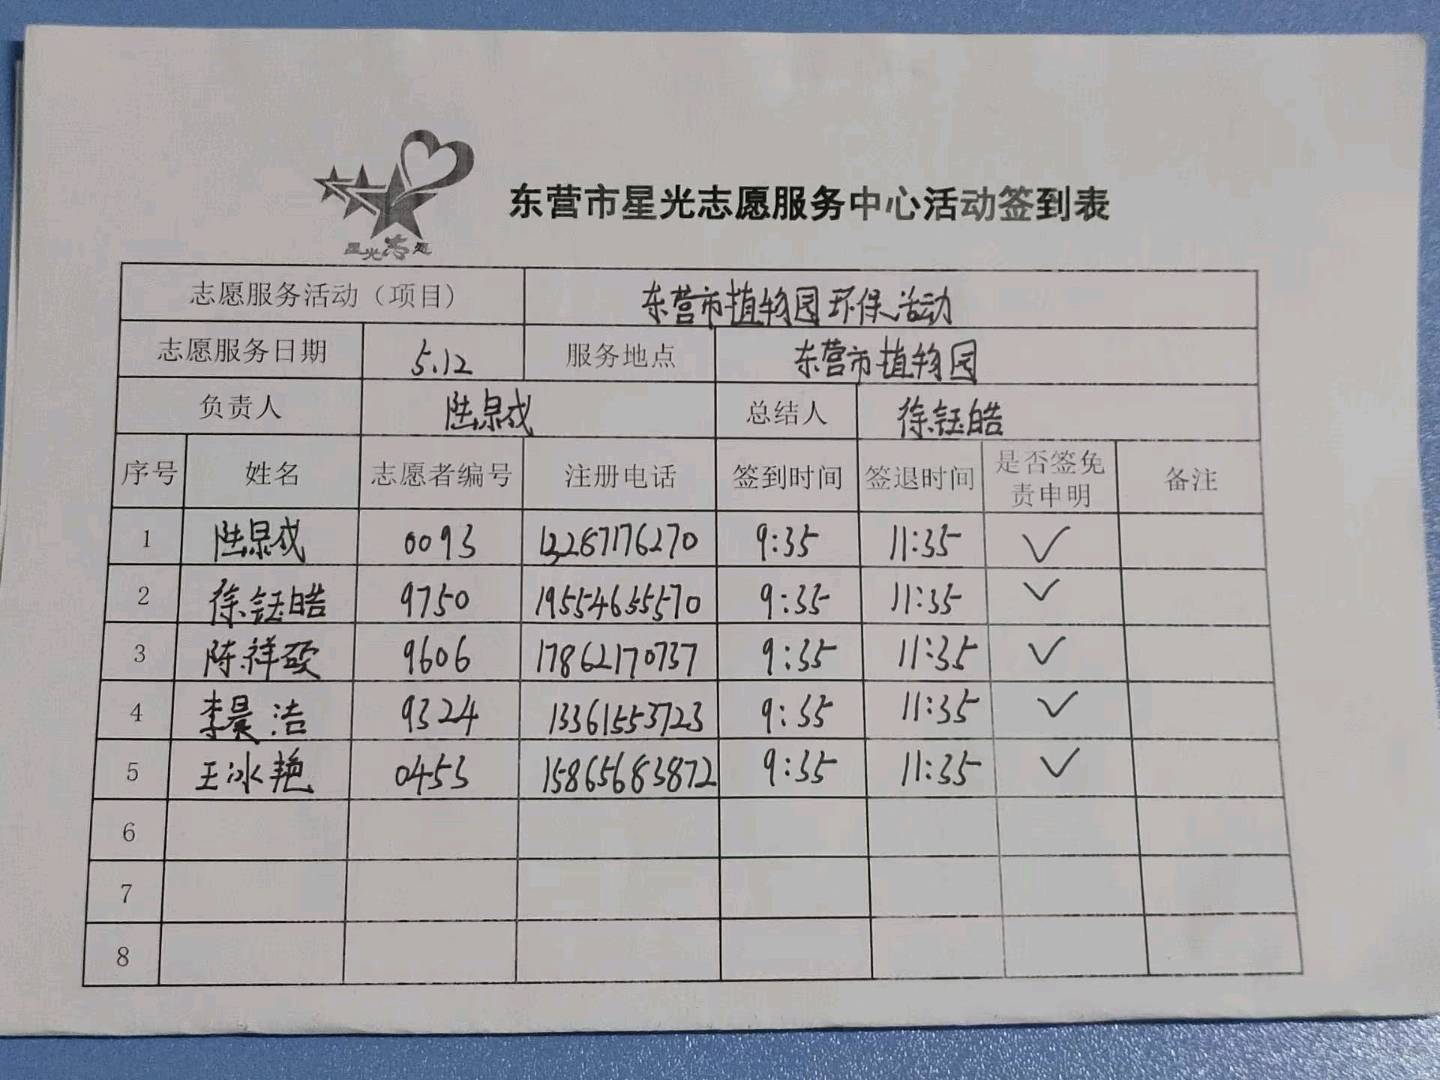 星光志愿
东营市星光志愿服务中心活动签到表
志愿服务活动（项目） 东营市植物园环保活动
志愿服务日期 5.12 服务地点 东营市植物园
负责人 陆泉成 总结人 徐钰皓
序号 姓名 志愿者编号 注册电话 签到时间 签退时间 是否签免责申明 备注
1 陆泉成 0093 13287176270 9:35 11:35 ✓
2 徐钰皓 9750 19554655570 9:35 11:35 ✓
3 陈祥硕 9606 17862170737 9:35 11:35 ✓
4 李昊洁 9324 13361553723 9:35 11:35 ✓
5 王冰艳 0453 15865683872 9:35 11:35 ✓
6
7
8